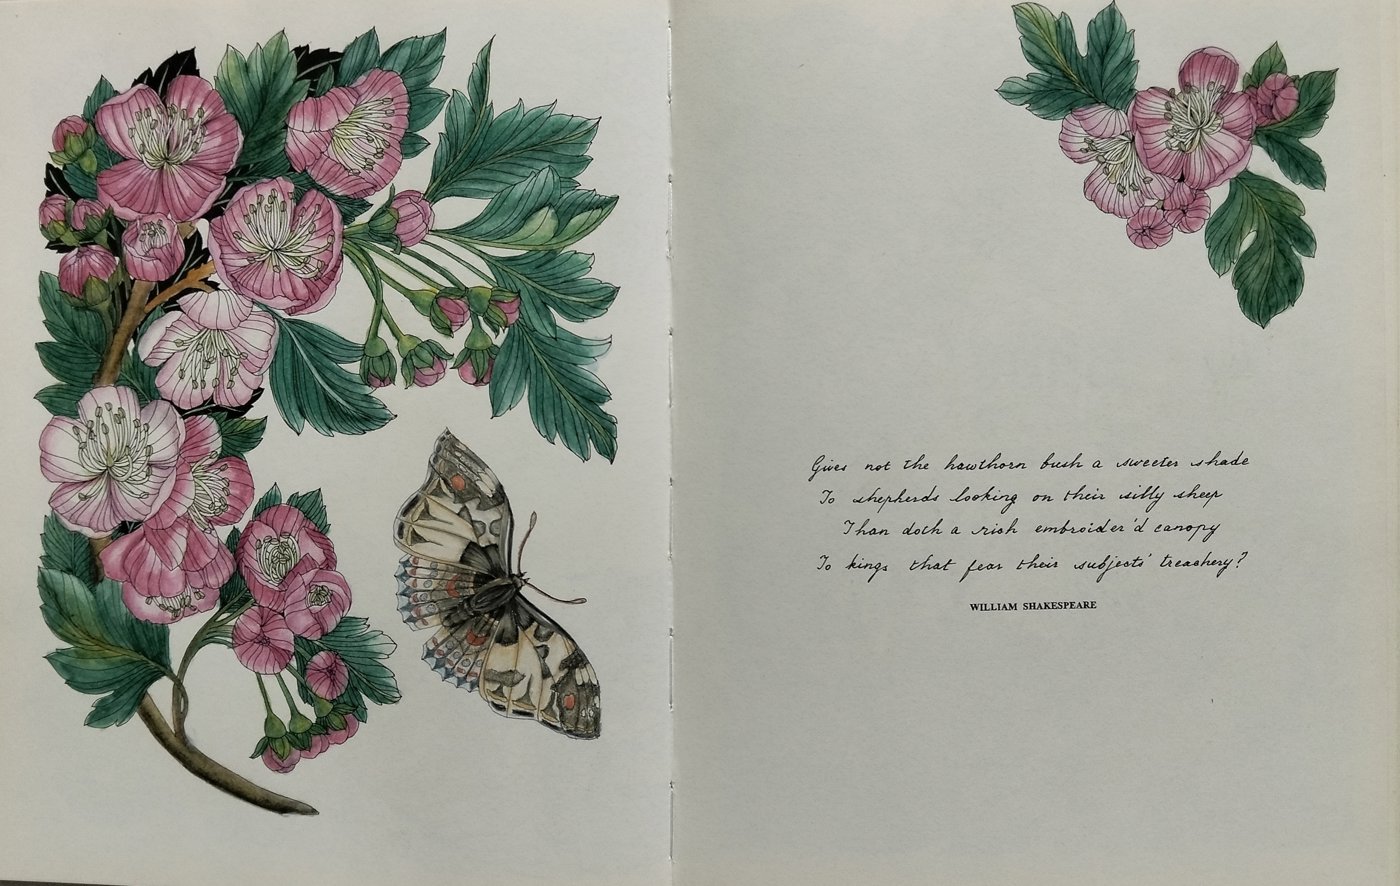 Gives not the hawthorn bush a sweeter shade
To shepherds looking on their silly sheep
Than doth a rich embroider'd canopy
To kings that fear their subjects' treachery?
WILLIAM SHAKESPEARE